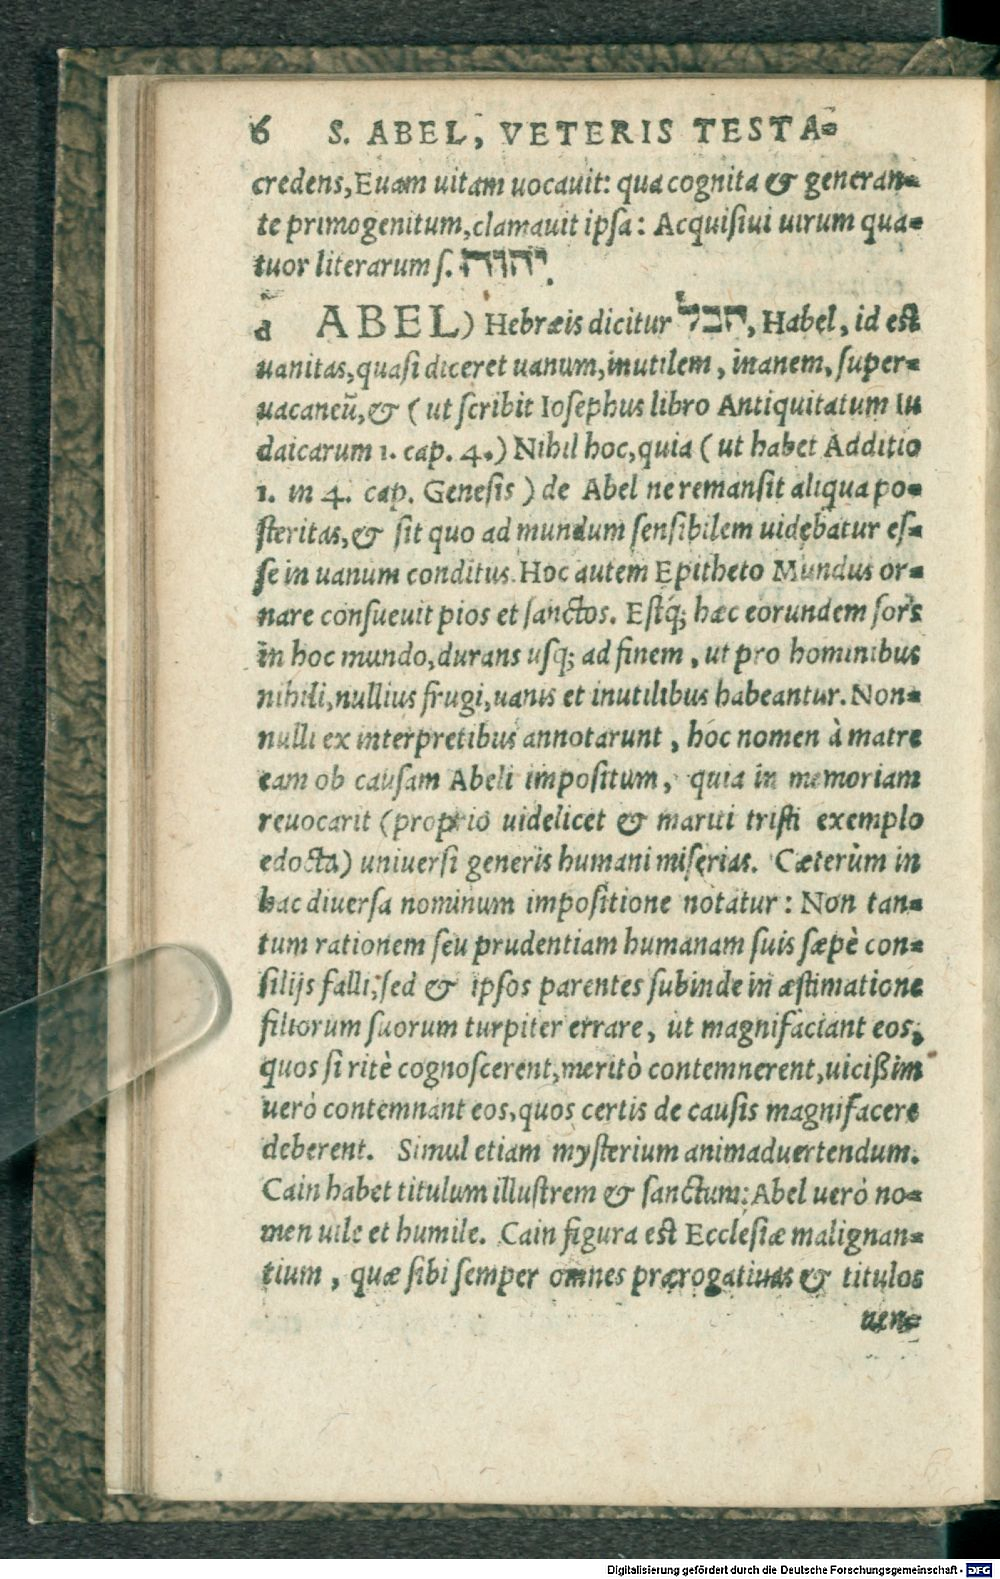 6 S. ABEL, VETERIS TESTA=
credens, Euam uitam uocauit: qua cognita & generan=
te primogenitum, clamauit ipsa: Acquisiui uirum qua=
tuor literarum s. יהוה.
d ABEL) Hebræis dicitur הבל, Habel, id est
uanitas, quasi diceret uanum, inutilem, inanem, super=
uacaneũ, & (ut scribit Iosephus libro Antiquitatum Iu
daicarum 1. cap. 4.) Nihil hoc, quia (ut habet Additio
1. in 4. cap. Genesis) de Abel ne remansit aliqua po=
steritas, & sit quo ad mundum sensibilem uidebatur es=
se in uanum conditus. Hoc autem Epitheto Mundus or=
nare consueuit pios et sanctos. Estq́; hæc eorundem sors
in hoc mundo, durans usq; ad finem, ut pro hominibus
nihili, nullius frugi, uanis et inutilibus habeantur. Non=
nulli ex interpretibus annotarunt, hoc nomen à matre
eam ob causam Abeli impositum, quia in memoriam
reuocarit (proprio uidelicet & mariti tristi exemplo
edocta) uniuersi generis humani miserias. Cæterùm in
hac diuersa nominum impositione notatur: Non tan=
tum rationem seu prudentiam humanam suis sæpè con=
silijs falli, sed & ipsos parentes subinde in æstimatione
filiorum suorum turpiter errare, ut magnifaciant eos,
quos si ritè cognoscerent, meritò contemnerent, uicißim
uerò contemnant eos, quos certis de causis magnifacere
deberent. Simul etiam mysterium animaduertendum.
Cain habet titulum illustrem & sanctum: Abel uerò no=
men uile et humile. Cain figura est Ecclesiæ malignan=
tium, quæ sibi semper omnes prærogatiuas & titulos
uen=
Digitalisierung gefördert durch die Deutsche Forschungsgemeinschaft - DFG